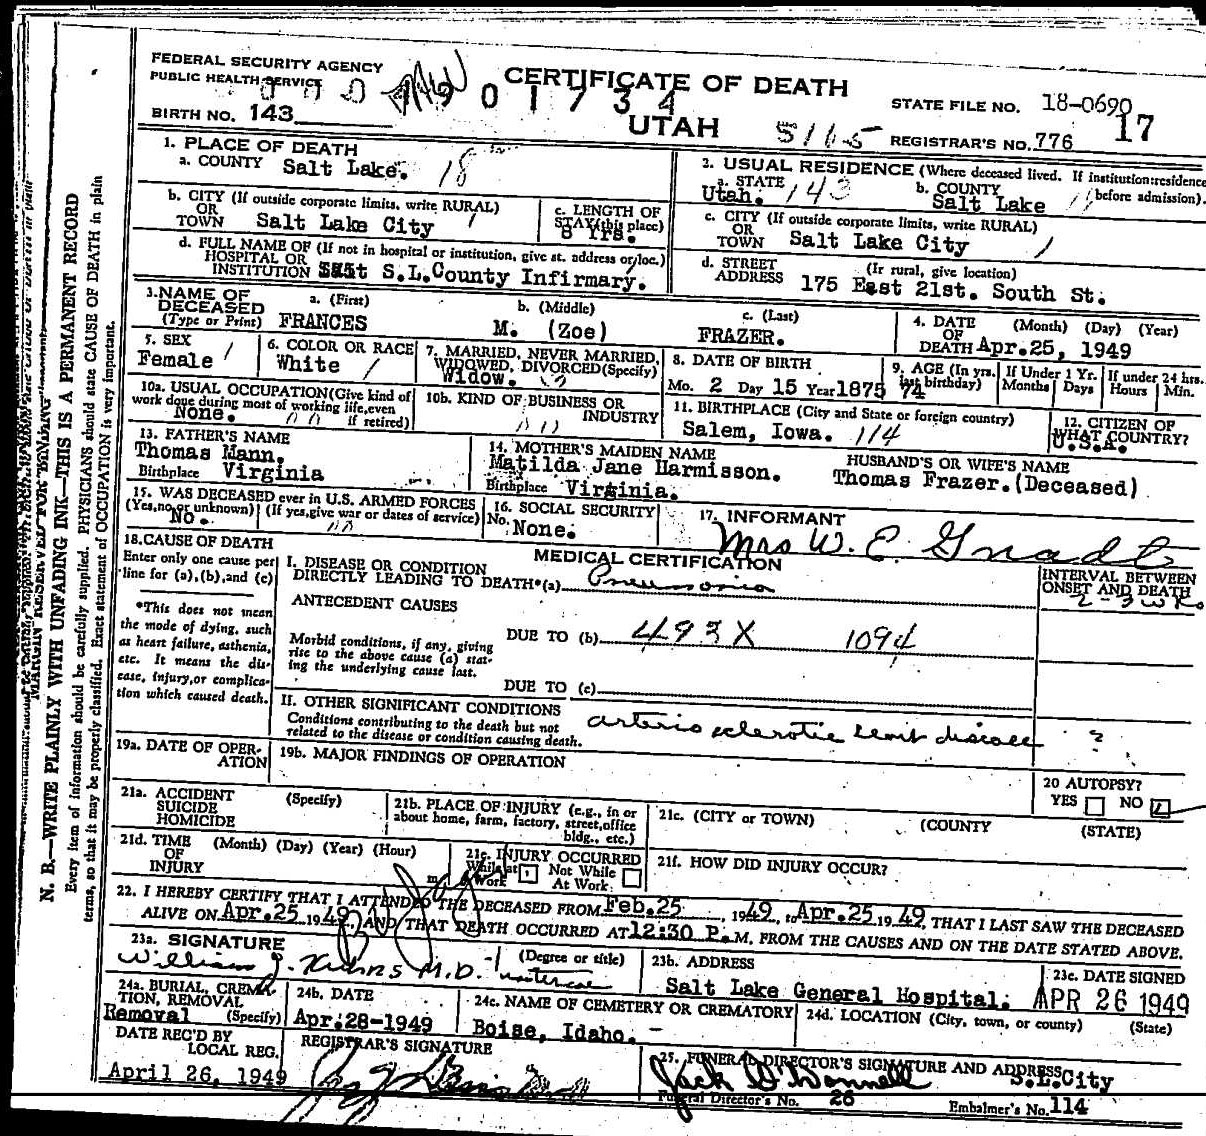 FEDERAL SECURITY AGENCY
PUBLIC HEALTH SERVICE
CERTIFICATE OF DEATH
0 1 7 3 4
STATE FILE NO. 18-0690
17
BIRTH NO. 143
UTAH
5115
REGISTRAR'S NO. 776
1. PLACE OF DEATH
a. COUNTY Salt Lake. 18
2. USUAL RESIDENCE (Where deceased lived. If institution: residence before admission).
a. STATE Utah. 143
b. COUNTY Salt Lake
b. CITY (If outside corporate limits, write RURAL)
OR
TOWN Salt Lake City 1
c. LENGTH OF
STAY (this place)
8 Yrs.
c. CITY (If outside corporate limits, write RURAL)
OR
TOWN Salt Lake City 1
d. FULL NAME OF (If not in hospital or institution, give st. address or loc.)
HOSPITAL OR
INSTITUTION S.L.County Infirmary.
d. STREET (If rural, give location)
ADDRESS 175 East 21st. South St.
3. NAME OF
DECEASED
(Type or Print)
a. (First) FRANCES
b. (Middle) M. (Zoe)
c. (Last) FRAZER.
4. DATE (Month) (Day) (Year)
OF
DEATH Apr.25, 1949
5. SEX
Female 1
6. COLOR OR RACE
White 1
7. MARRIED, NEVER MARRIED,
WIDOWED, DIVORCED (Specify)
Widow.
8. DATE OF BIRTH
Mo. 2 Day 15 Year 1875
9. AGE (In yrs.
last birthday)
74
If Under 1 Yr.
Months Days
If under 24 hrs.
Hours Min.
10a. USUAL OCCUPATION (Give kind of
work done during most of working life, even
if retired)
None.
10b. KIND OF BUSINESS OR
INDUSTRY
11. BIRTHPLACE (City and State or foreign country)
Salem, Iowa. 114
12. CITIZEN OF
WHAT COUNTRY?
U.S.A.
13. FATHER'S NAME
Thomas Mann.
Birthplace Virginia
14. MOTHER'S MAIDEN NAME
Matilda Jane Harmisson.
Birthplace Virginia.
HUSBAND'S OR WIFE'S NAME
Thomas Frazer.(Deceased)
15. WAS DECEASED ever in U.S. ARMED FORCES
(Yes, no, or unknown) (If yes, give war or dates of service)
No.
16. SOCIAL SECURITY
No. None.
17. INFORMANT
Mrs W. E. Gnadt
18. CAUSE OF DEATH
Enter only one cause per
line for (a), (b), and (c)
*This does not mean
the mode of dying, such
as heart failure, asthenia,
etc. It means the dis-
ease, injury, or complica-
tion which caused death.
MEDICAL CERTIFICATION
I. DISEASE OR CONDITION
DIRECTLY LEADING TO DEATH*(a) Pneumonia
INTERVAL BETWEEN
ONSET AND DEATH
2-3 wks
ANTECEDENT CAUSES
Morbid conditions, if any, giving
rise to the above cause (a) stat-
ing the underlying cause last.
DUE TO (b) 493X 1094
DUE TO (c)
II. OTHER SIGNIFICANT CONDITIONS
Conditions contributing to the death but not
related to the disease or condition causing death.
arterio sclerotic heart disease ?
19a. DATE OF OPER-
ATION
19b. MAJOR FINDINGS OF OPERATION
20 AUTOPSY?
YES NO
21a. ACCIDENT (Specify)
SUICIDE
HOMICIDE
21b. PLACE OF INJURY (e.g., in or
about home, farm, factory, street, office
bldg., etc.)
21c. (CITY or TOWN) (COUNTY) (STATE)
21d. TIME (Month) (Day) (Year) (Hour)
OF
INJURY m
21e. INJURY OCCURRED
While at Work
Not While At Work
21f. HOW DID INJURY OCCUR?
22. I HEREBY CERTIFY THAT I ATTENDED THE DECEASED FROM Feb.25, 1949, to Apr.25 1949, THAT I LAST SAW THE DECEASED
ALIVE ON Apr.25 1949, AND THAT DEATH OCCURRED AT 12:30 P.M. FROM THE CAUSES AND ON THE DATE STATED ABOVE.
23a. SIGNATURE (Degree or title)
William J. Kuhns M.D.
23b. ADDRESS
Salt Lake General Hospital.
23c. DATE SIGNED
APR 26 1949
24a. BURIAL, CREMA-
TION, REMOVAL
(Specify)
Removal
24b. DATE
Apr.28-1949
24c. NAME OF CEMETERY OR CREMATORY
Boise, Idaho.
24d. LOCATION (City, town, or county) (State)
DATE REC'D BY
LOCAL REG.
April 26, 1949
REGISTRAR'S SIGNATURE
25. FUNERAL DIRECTOR'S SIGNATURE AND ADDRESS
Jack O'Donnell S.L.City
Funeral Director's No. 26
Embalmer's No. 114
MARGIN RESERVED FOR BINDING
N. B.—WRITE PLAINLY WITH UNFADING INK—THIS IS A PERMANENT RECORD
Every item of information should be carefully supplied. PHYSICIANS should state CAUSE OF DEATH in plain
terms, so that it may be properly classified. Exact statement of OCCUPATION is very important.